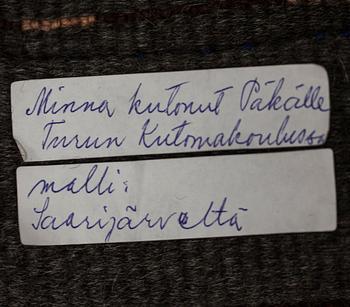 Minna kutonut Päkälle
Turun Kutomakoulussa
malli:
Saarijärveltä